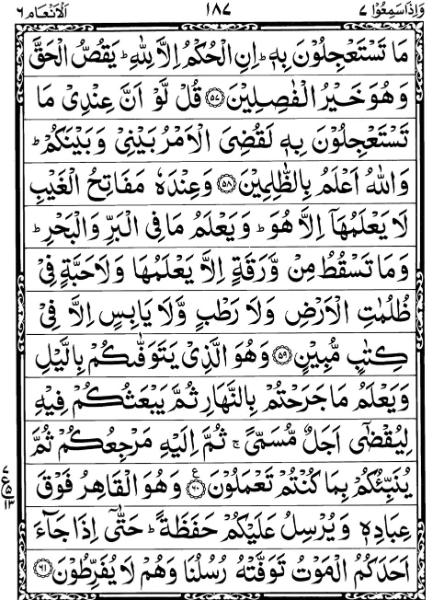 وَاِذَا سَمِعُوْا ٧ ١٨٧ اَلْاَنْعَام ٦
مَا تَسْتَعْجِلُوْنَ بِهٖ ؕ اِنِ الْحُكْمُ اِلَّا لِلّٰهِ ؕ يَقُصُّ الْحَقَّ
وَهُوَ خَيْرُ الْفٰصِلِيْنَ ﴿٥٧﴾ قُلْ لَّوْ اَنَّ عِنْدِىْ مَا
تَسْتَعْجِلُوْنَ بِهٖ لَقُضِىَ الْاَمْرُ بَيْنِىْ وَبَيْنَكُمْ ؕ
وَاللّٰهُ اَعْلَمُ بِالظّٰلِمِيْنَ ﴿٥٨﴾ وَعِنْدَهٗ مَفَاتِحُ الْغَيْبِ
لَا يَعْلَمُهَاۤ اِلَّا هُوَ ؕ وَيَعْلَمُ مَا فِى الْبَرِّ وَالْبَحْرِ ؕ
وَمَا تَسْقُطُ مِنْ وَّرَقَةٍ اِلَّا يَعْلَمُهَا وَلَا حَبَّةٍ فِىْ
ظُلُمٰتِ الْاَرْضِ وَلَا رَطْبٍ وَّلَا يَابِسٍ اِلَّا فِىْ
كِتٰبٍ مُّبِيْنٍ ﴿٥٩﴾ وَهُوَ الَّذِىْ يَتَوَفّٰٮكُمْ بِالَّيْلِ
وَيَعْلَمُ مَا جَرَحْتُمْ بِالنَّهَارِ ثُمَّ يَبْعَثُكُمْ فِيْهِ
لِيُقْضٰٓى اَجَلٌ مُّسَمًّى ۚ ثُمَّ اِلَيْهِ مَرْجِعُكُمْ ثُمَّ
يُنَبِّئُكُمْ بِمَا كُنْتُمْ تَعْمَلُوْنَ ﴿٦٠﴾ وَهُوَ الْقَاهِرُ فَوْقَ
عِبَادِهٖ وَيُرْسِلُ عَلَيْكُمْ حَفَظَةً ؕ حَتّٰٓى اِذَا جَآءَ
اَحَدَكُمُ الْمَوْتُ تَوَفَّتْهُ رُسُلُنَا وَهُمْ لَا يُفَرِّطُوْنَ ﴿٦١﴾